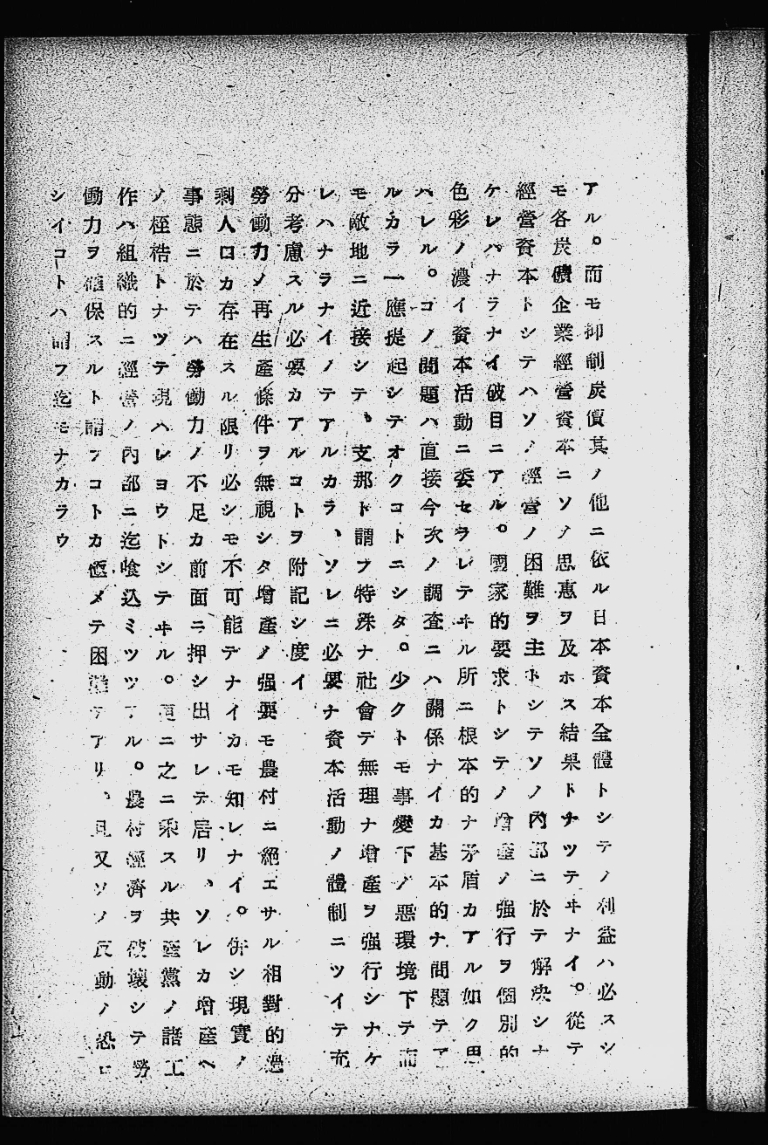 アル。而モ抑制炭價其ノ他ニ依ル日本資本全體トシテノ利益ハ必スシ
モ各炭礦企業經營資本ニソノ思惠ヲ及ホス結果トナツテヰナイ。從テ
經營資本トシテハソノ經營ノ困難ヲ主トシテソノ內部ニ於テ解決シナ
ケレバナラナイ破目ニアル。國家的要求トシテノ增產ノ强行ヲ個別的
色彩ノ濃イ資本活動ニ委セラレテヰル所ニ根本的ナ矛盾カアル如ク思
ハレル。コノ問題ハ直接今次ノ調査ニハ關係ナイカ基本的ナ問題テア
ルカラ一應提起シテオクコトニシタ。少クトモ事變下ノ惡環境下テ而
モ敵地ニ近接シテ、支那ト謂フ特殊ナ社會デ無理ナ增產ヲ强行シナケ
レハナラナイノテアルカラ、ソレニ必要ナ資本活動ノ體制ニツイテ充
分考慮スル必要カアルコトヲ附記シ度イ
勞働力ノ再生產條件ヲ無視シタ增產ノ强要モ農村ニ絕エサル相對的過
剩人口カ存在スル限リ必シモ不可能デナイカモ知レナイ。併シ現實ノ
事態ニ於テハ勞働力ノ不足カ前面ニ押シ出サレテ居リ、ソレカ增產ヘ
ノ桎梏トナツテ現ハレヨウトシテヰル。更ニ之ニ乘スル共產黨ノ諸工
作ハ組織的ニ經營ノ內部ニ迄喰込ミツツアル。農村經濟ヲ破壞シテ勞
働力ヲ確保スルト謂フコトカ極メテ困難テアリ、且又ソノ反動ノ恐ロ
シイコトハ謂フ迄モナカラウ